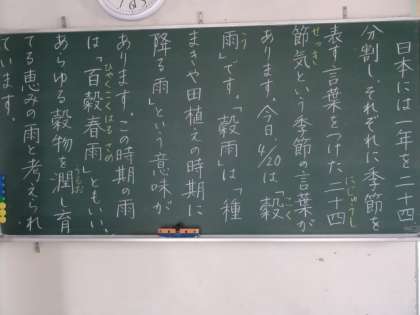 日本には一年を二十四
分割し、それぞれに季節を
表す言葉をつけた二十四
にじゅうし
節気という季節の言葉が
せっき
あります。今日4/20は「穀
こく
雨」です。「穀雨」は「種
う
まきや田植えの時期に
降る雨」という意味が
あります。この時期の雨
は「百穀春雨」ともいい、
ひゃくこくはるさめ
あらゆる穀物を潤し育
うるお
てる恵みの雨と考えられ
ています。